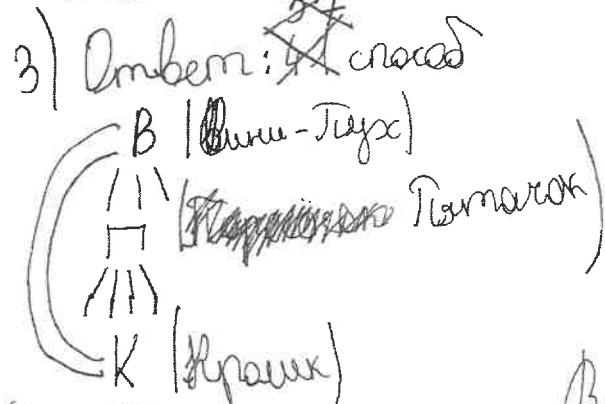 3) Ответ: способ
В (Вини-Пух)
П (Пятачок)
К (Кролик)
В